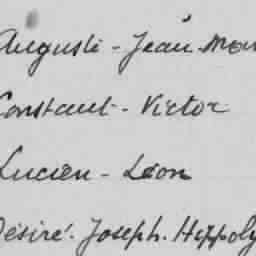 Auguste - Jean Mar
Constant - Victor
Lucien - Léon
Désiré. Joseph. Hippoly